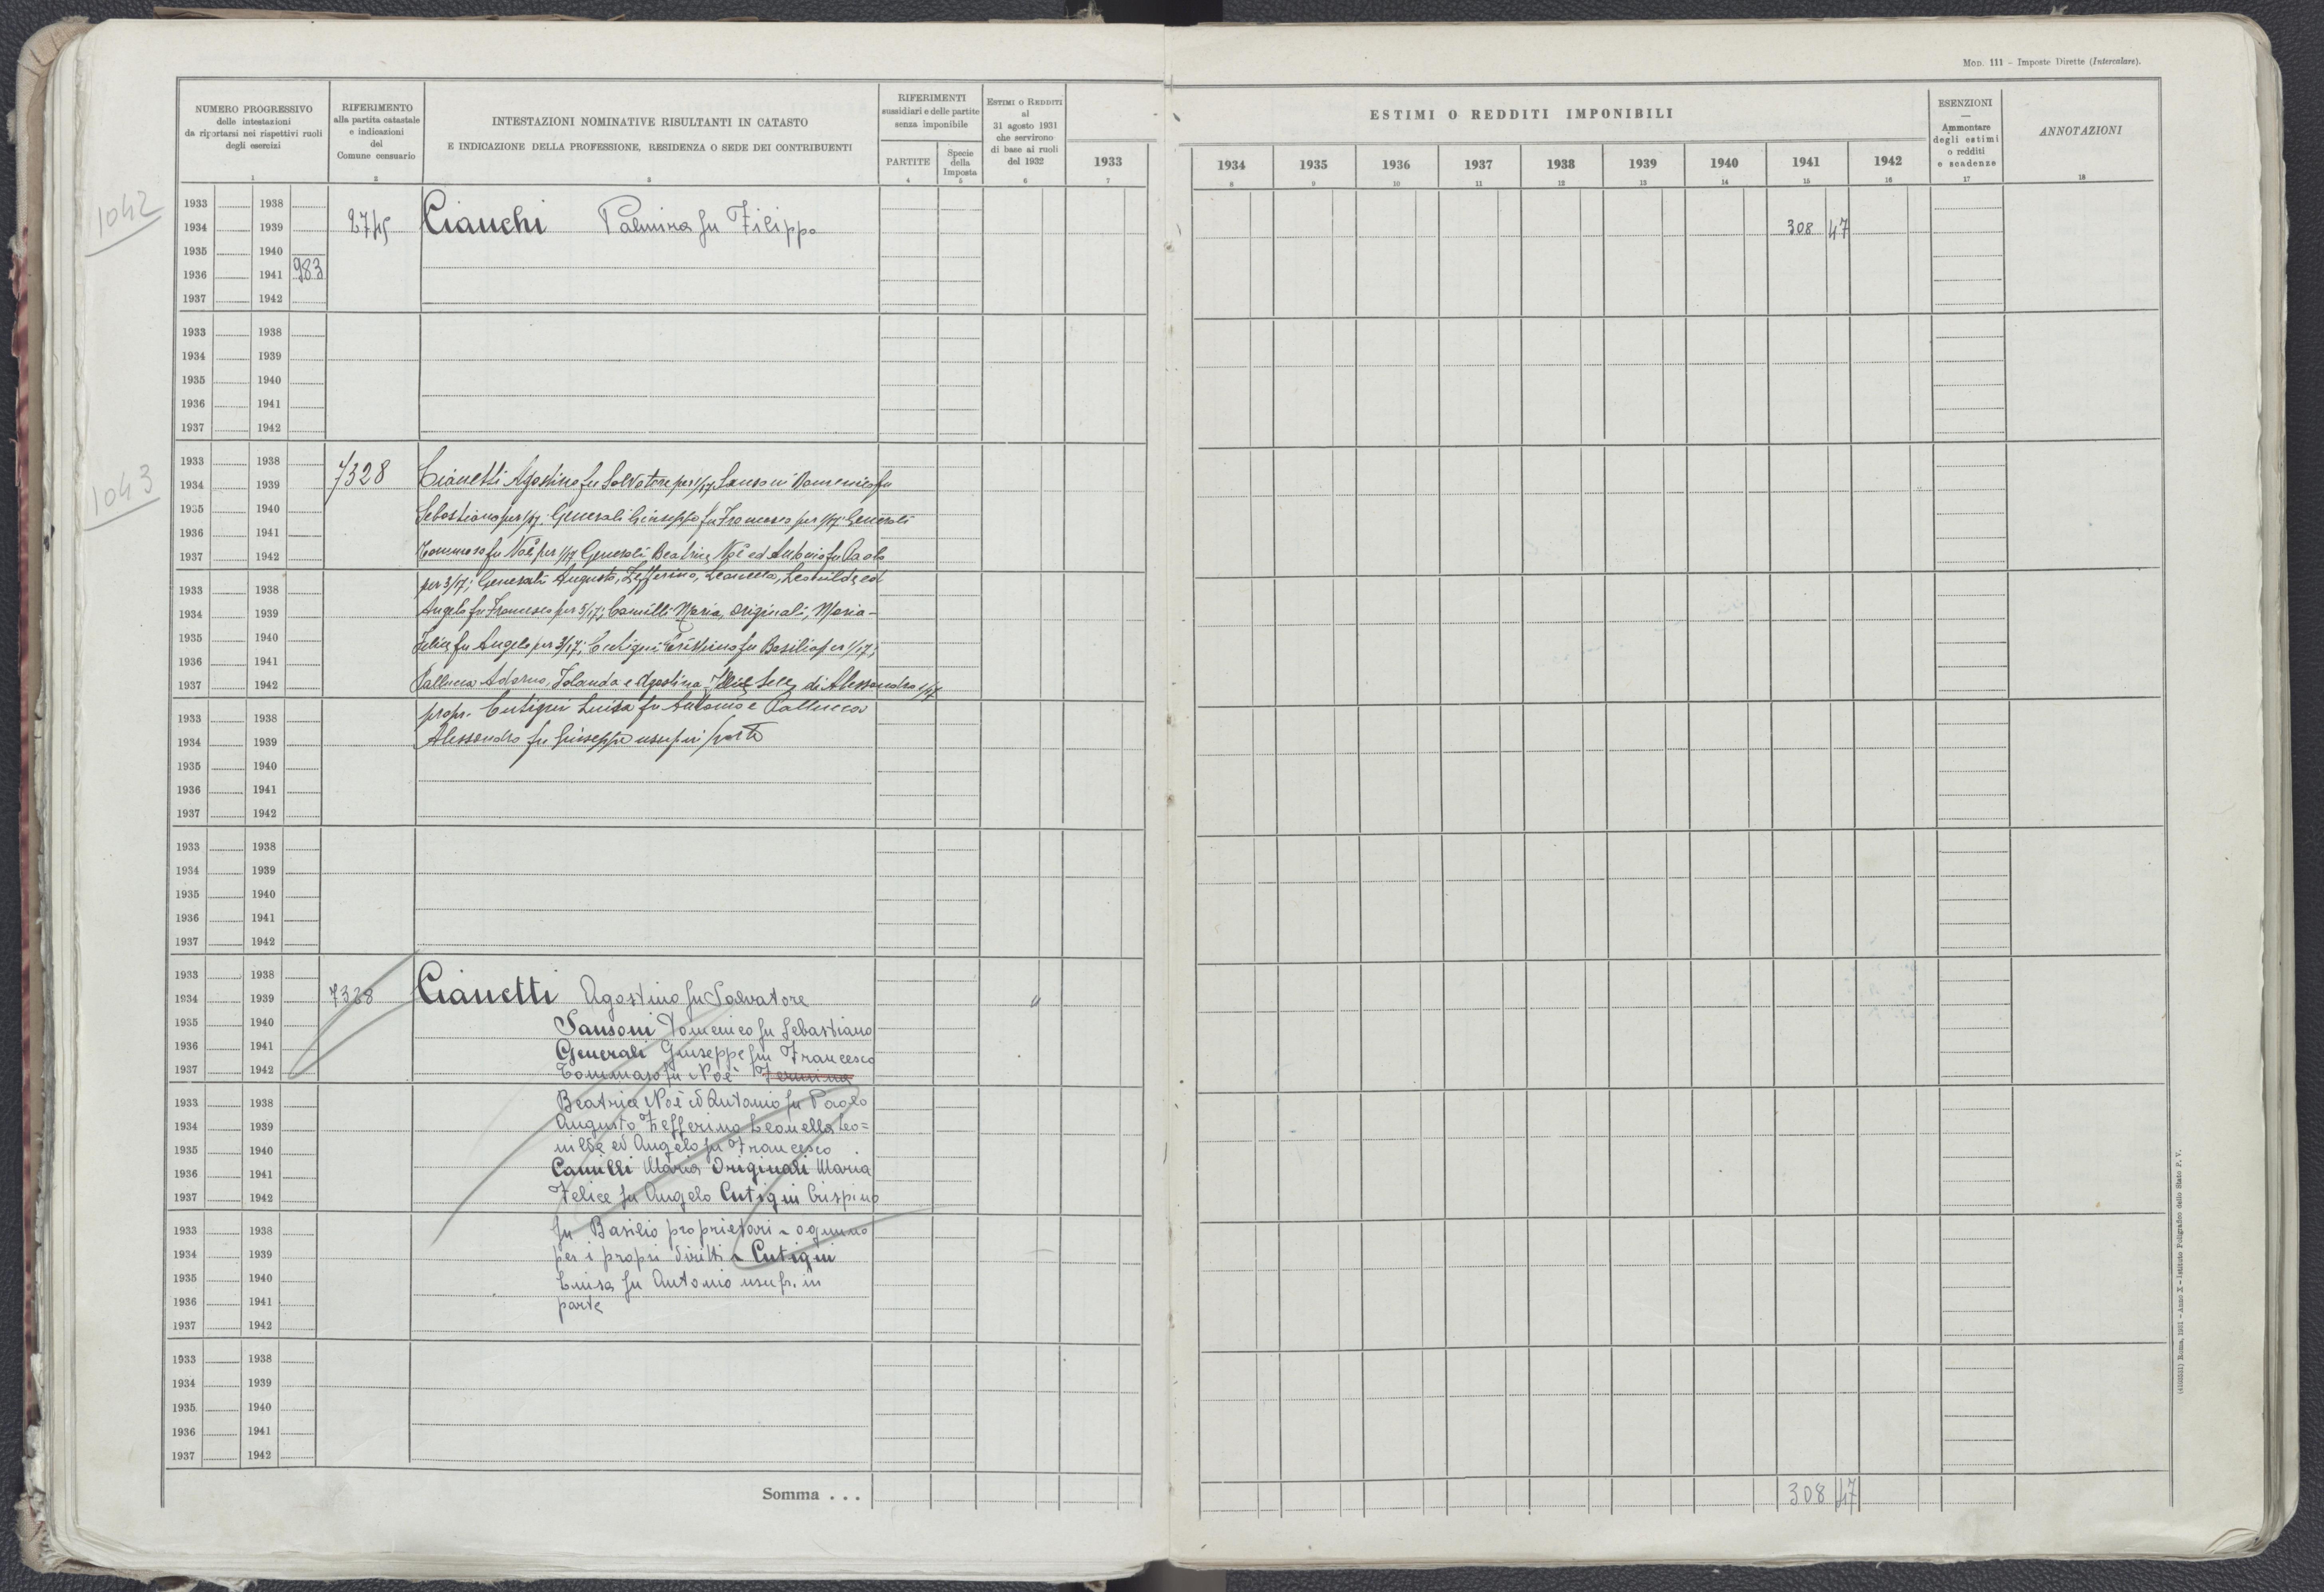 Mod. 111 - Imposte Dirette (Intercalare).
NUMERO PROGRESSIVO
delle intestazioni
da riportarsi nei rispettivi ruoli
degli esercizi
1
RIFERIMENTO
alla partita catastale
e indicazioni
del
Comune censuario
2
INTESTAZIONI NOMINATIVE RISULTANTI IN CATASTO
E INDICAZIONE DELLA PROFESSIONE, RESIDENZA O SEDE DEI CONTRIBUENTI
3
RIFERIMENTI
sussidiari e delle partite
senza imponibile
PARTITE
4
Specie
della
Imposta
5
Estimi o Redditi
al
31 agosto 1931
che servirono
di base ai ruoli
del 1932
6
1933
7
ESTIMI O REDDITI IMPONIBILI
1934 1935 1936 1937 1938 1939 1940 1941 1942
8 9 10 11 12 13 14 15 16
ESENZIONI
—
Ammontare
degli estimi
o redditi
e scadenze
17
ANNOTAZIONI
18
1042
1933 1938
1934 1939 2745 Cianchi Palmira fu Filippo 308 47
1935 1940
1936 1941 983
1937 1942
1933 1938
1934 1939
1935 1940
1936 1941
1937 1942
1043
1933 1938
1934 1939 7328 Cianetti Agostino fu Salvatore per 1/17 Sansoni Domenico fu
1935 1940 Sebastiano per 1/17; Generali Giuseppe fu Francesco per 1/17; Generali
1936 1941
1937 1942 Tommaso fu Noè per 1/17 Generali Beatrice Noè ed Antonio fu Paolo
1933 1938 per 3/17; Generali Augusto, Zefferino, Leonella, Leonilde ed
1934 1939 Angelo fu Francesco per 5/17; Camilli Maria, Originali, Maria-
1935 1940 Felice fu Angelo per 3/17; Cutigni Crispino fu Basilio per 1/17;
1936 1941
1937 1942 Pallucca Adorno, Iolanda e Agostina di Alessandro 1/17
1933 1938 propr. Cutigni Luisa fu Antonio e Pallucca
1934 1939 Alessandro fu Giuseppe usuf. in parte
1935 1940
1936 1941
1937 1942
1933 1938
1934 1939
1935 1940
1936 1941
1937 1942
1933 1938
1934 1939 7328 Cianetti Agostino fu Salvatore
1935 1940 Sansoni Domenico fu Sebastiano
1936 1941 Generali Giuseppe fu Francesco
1937 1942 Tommaso fu Noè
1933 1938 Beatrice Noè ed Antonio fu Paolo
1934 1939 Augusto Zefferino Leonella Leo=
1935 1940 nilde ed Angelo fu Francesco
1936 1941 Camilli Maria Originali Maria
1937 1942 Felice fu Angelo Cutigni Crispino
1933 1938 fu Basilio proprietari - ognuno
1934 1939 per i propri diritti - Cutigni
1935 1940 Luisa fu Antonio usufr. in
1936 1941 parte
1937 1942
1933 1938
1934 1939
1935 1940
1936 1941
1937 1942
Somma . . . 308 47
(4102531) Roma, 1931 - Anno X - Istituto Poligrafico dello Stato P. V.